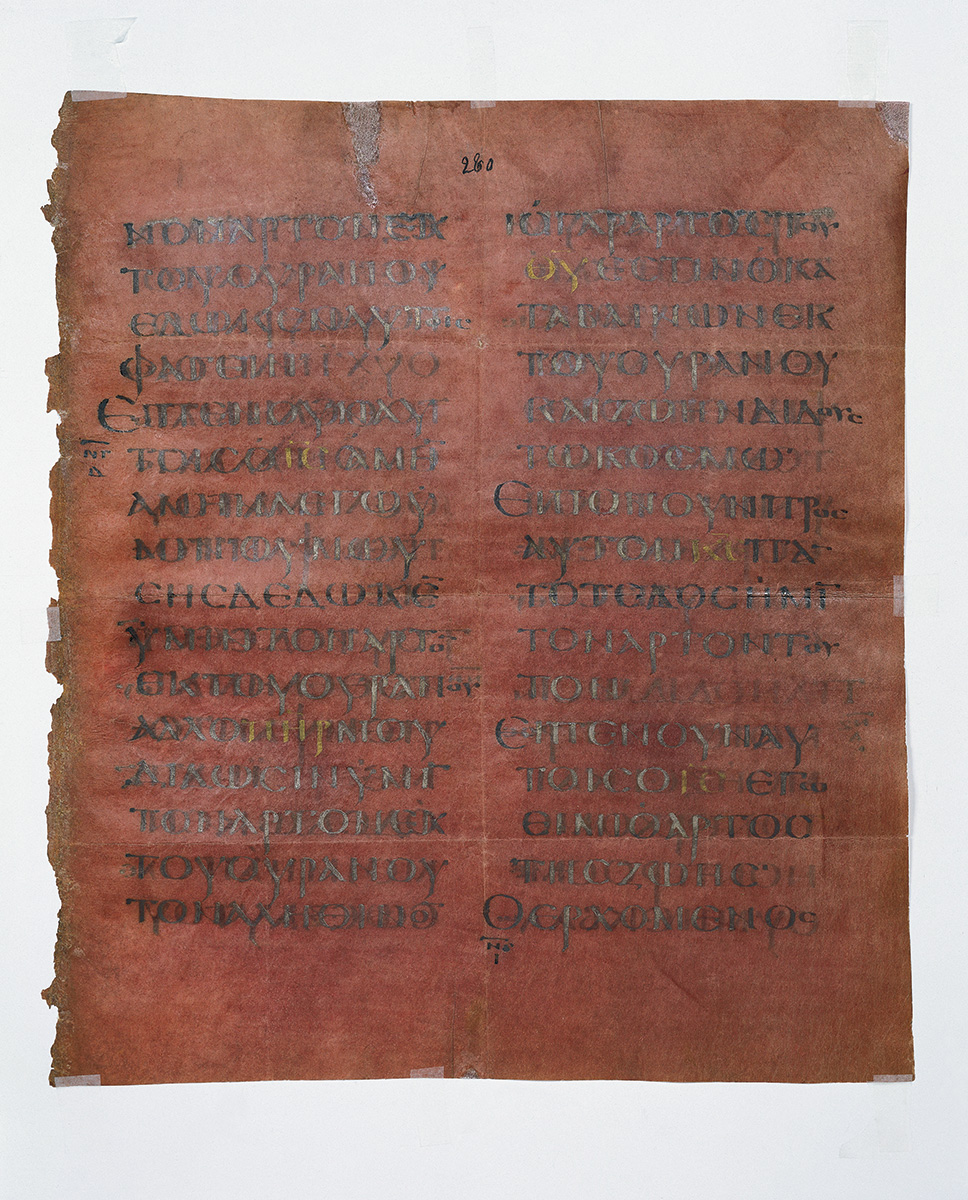 260
ΑΡΤΟΝ ΕΚ
ΤΟΥ ΟΥΡΑΝΟΥ
ΕΔΩΚΕΝ ΑΥΤΟΙϹ
ΦΑΓΕΙΝ
ΕΙΠΕΝ ΟΥΝ ΑΥ
ΤΟΙϹ Ο ΙϹ ΑΜΗ̅
ΑΜΗΝ ΛΕΓΩ Ϋ
ΜΙΝ ΟΥ ΜΩΥ
ϹΗϹ ΔΕΔΩΚΕ̅
ΫΜΙΝ ΤΟΝ ΑΡΤΟ̅
ΕΚ ΤΟΥ ΟΥΡΑΝΟΥ
ΑΛΛ Ο ΠΗΡ ΜΟΥ
ΔΙΔΩϹΙΝ ΫΜΙ̅
ΤΟΝ ΑΡΤΟΝ ΕΚ
ΤΟΥ ΟΥΡΑΝΟΥ
ΤΟΝ ΑΛΗΘΙΝΟ̅
Ο ΓΑΡ ΑΡΤΟϹ ΤΟΥ
ΘΥ ΕϹΤΙΝ Ο ΚΑ
ΤΑΒΑΙΝΩΝ ΕΚ
ΤΟΥ ΟΥΡΑΝΟΥ
ΚΑΙ ΖΩΗΝ ΔΙΔΟΥϹ
ΤΩ ΚΟϹΜΩ
ΕΙΠΟΝ ΟΥΝ ΠΡΟϹ
ΑΥΤΟΝ ΚΕ ΠΑ̅
ΤΟΤΕ ΔΟϹ ΗΜΙ̅
ΤΟΝ ΑΡΤΟΝ ΤΟΥ
ΤΟΝ
ΕΙΠΕΝ ΟΥΝ ΑΥ
ΤΟΙϹ Ο ΙϹ ΕΓΩ
ΕΙΜΙ Ο ΑΡΤΟϹ
ΤΗϹ ΖΩΗϹ
Ο ΕΡΧΟΜΕΝΟϹ